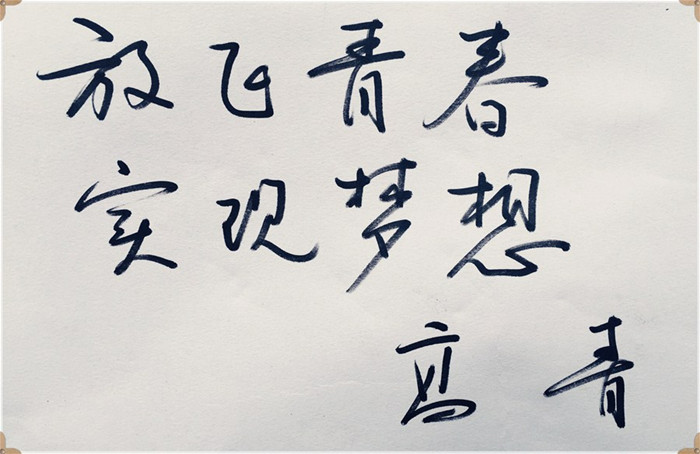 放飞青春
实现梦想
高青